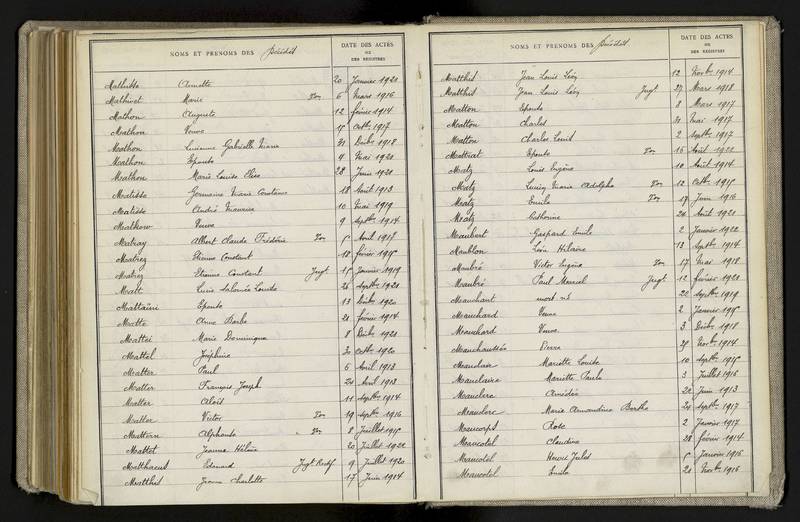 NOMS ET PRÉNOMS DES Décédés
DATE DES ACTES
OU
DES REGISTRES
Annette 20 Janvier 1920
Mathivet Marie 6 Mars 1916
Mathon Auguste 12 février 1914
Mathon Veuve 1917
Mathon Lucienne Gabrielle Marie 31 1918
Mathon Epouse 9 Mai 1920
Mathon Marie Louise 28 Juin 1920
Matisse Germaine Marie Constance 18 Août 1913
Matisse André Maurice 10 Mai 1919
Veuve 9 Septbre 1914
Albert Claude Frédéric Avril 1917
Matrez Etienne Constant février
Matrez Etienne Constant Jugt Janvier 1919
Matt Salomée Louise 26 Septbre 1920
Epouse 13 1920
Matte Anne Barbe février 1914
Mattei Marie Dominique 8 1920
Mattel Joséphine Octbre 1920
Matter Paul 6 Avril 1913
Matter François Joseph 24 Avril 1913
Matter Aloïs 11 Septbre 1914
Matter Victor 19 Septbre 1916
Mattern Alphonse 8 Juillet
Mattet Jeanne Hélène 20 Juillet
Matthaeus Edouard Jugt Rectif 9 Juillet 1920
Matthis Jeanne Charlotte 17 Juin 1914
NOMS ET PRÉNOMS DES Décédés
DATE DES ACTES
OU
DES REGISTRES
Matthis Jean Louis Léon 12 Novbre 1914
Matthis Jean Louis Léon Jugt 27 Mars 1918
Matton Epouse 8 Mars 1917
Matton Charles 31 Mai 1917
Matton Charles Louis 2 Septbre 1917
Epouse Août
Matz Louis Eugène 10 Août 1914
Matz Lucien Marie Adolphe 12 Octbre
Matz Emile 17 Juin 1916
Matz Catherine Août 1921
Maubert Gaspard Emile 2 Janvier
Maublon Léon Hilaire 13 Septbre 1914
Maubré Victor Eugène 17 Mai 1918
Maubré Paul Marcel Jugt 12 février 1920
Mauchant mort né 20 Septbre 1919
Mauchard Veuve 2 Janvier
Mauchard Veuve 3 1918
Mauchaussée Pierre Novbre 1914
Mauclair Mariette Louise 10 Septbre
Mauclaire Mariette Paule 3 Juillet 1916
Mauclerc Amédée Juin 1913
Mauclerc Marie Amandine Berthe Septbre 1917
Maucorps Rose 2 Janvier 1917
Maucotel Claudine 28 février 1914
Maucotel Henri Jules Janvier 1916
Maucotel Emile Novbre 1916